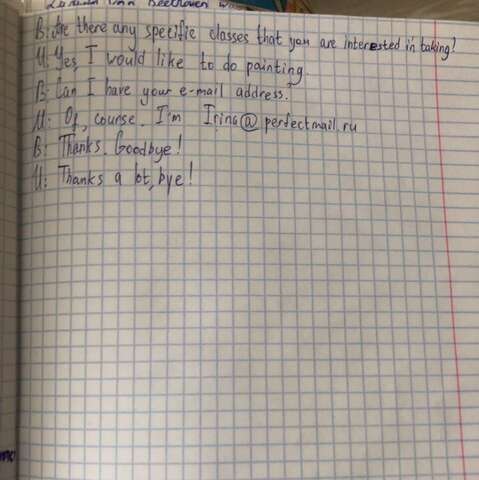 Beethoven
B: Are there any specific classes that you are interested in taking?
И: Yes, I would like to do painting.
B: Can I have your e-mail address?
И: Of, course. I'm Irina@perfectmail.ru
B: Thanks. Goodbye!
И: Thanks a lot, bye!